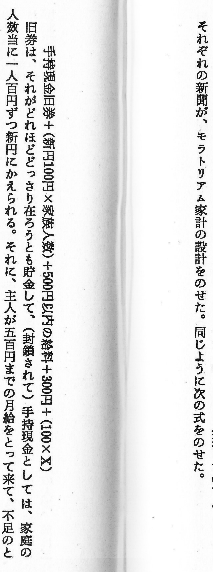 それぞれの新聞が、モラトリアム家計の設計をのせた。同じように次の式をのせた。
手持現金旧券+(新円100円×家族人数)+500円以内の給料+300円+(100×X)
旧券は、それがどれほどどっさり在ろうとも貯金して、(封鎖されて)手持現金としては、家庭の
人数当に一人百円ずつ新円にかえられる。それに、主人が五百円までの月給をとって来て、不足のと